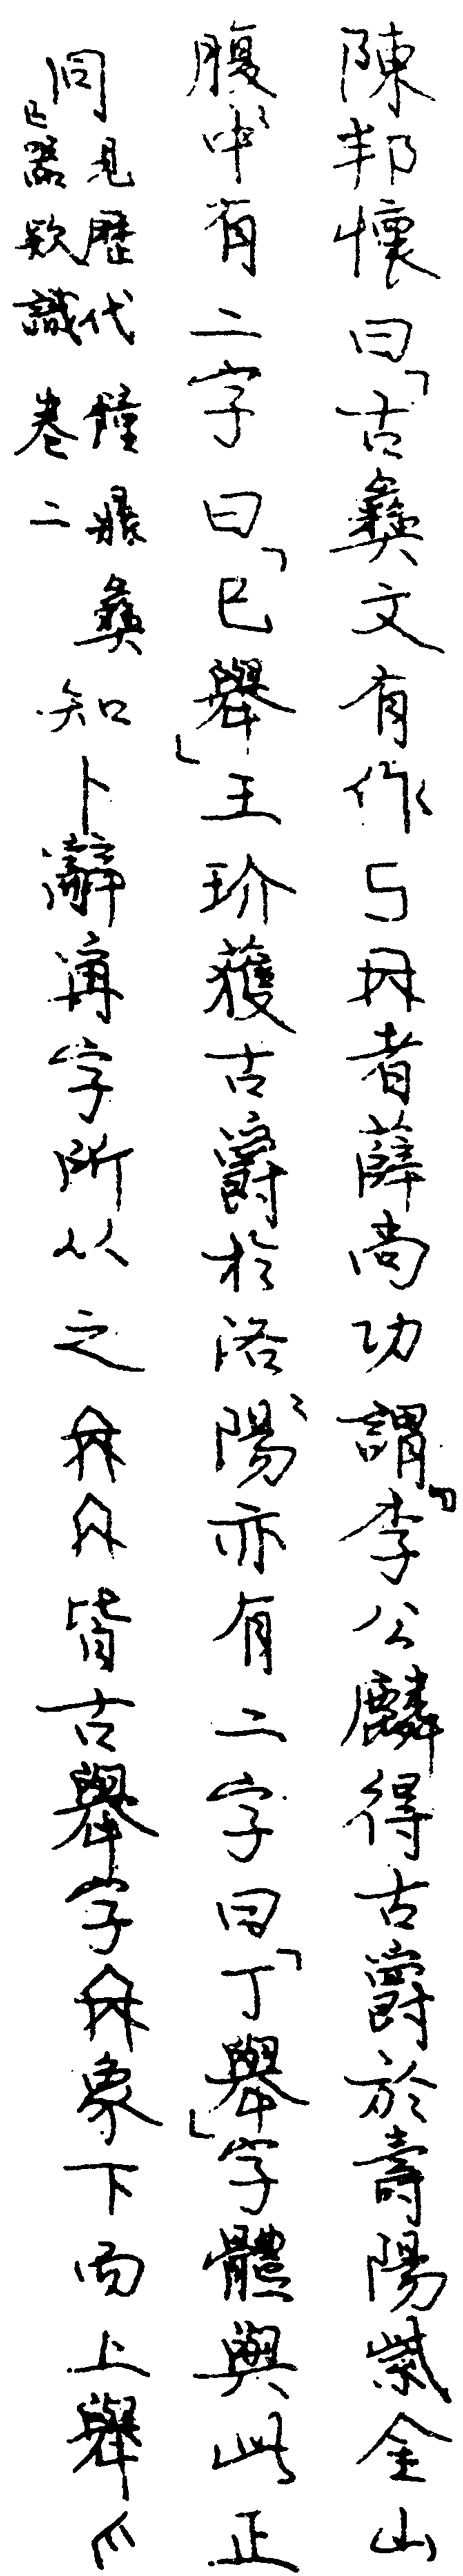 陳邦懷曰「古彝文有作者薛尚功謂『李公麟得古爵於壽陽紫金山
腹中有二字曰「己舉」王玠獲古爵於洛陽亦有二字曰「丁舉」字體與此正
同見歷代鐘鼎彝器款識卷二知卜辭冓字所以之皆古舉字象下而上舉爪